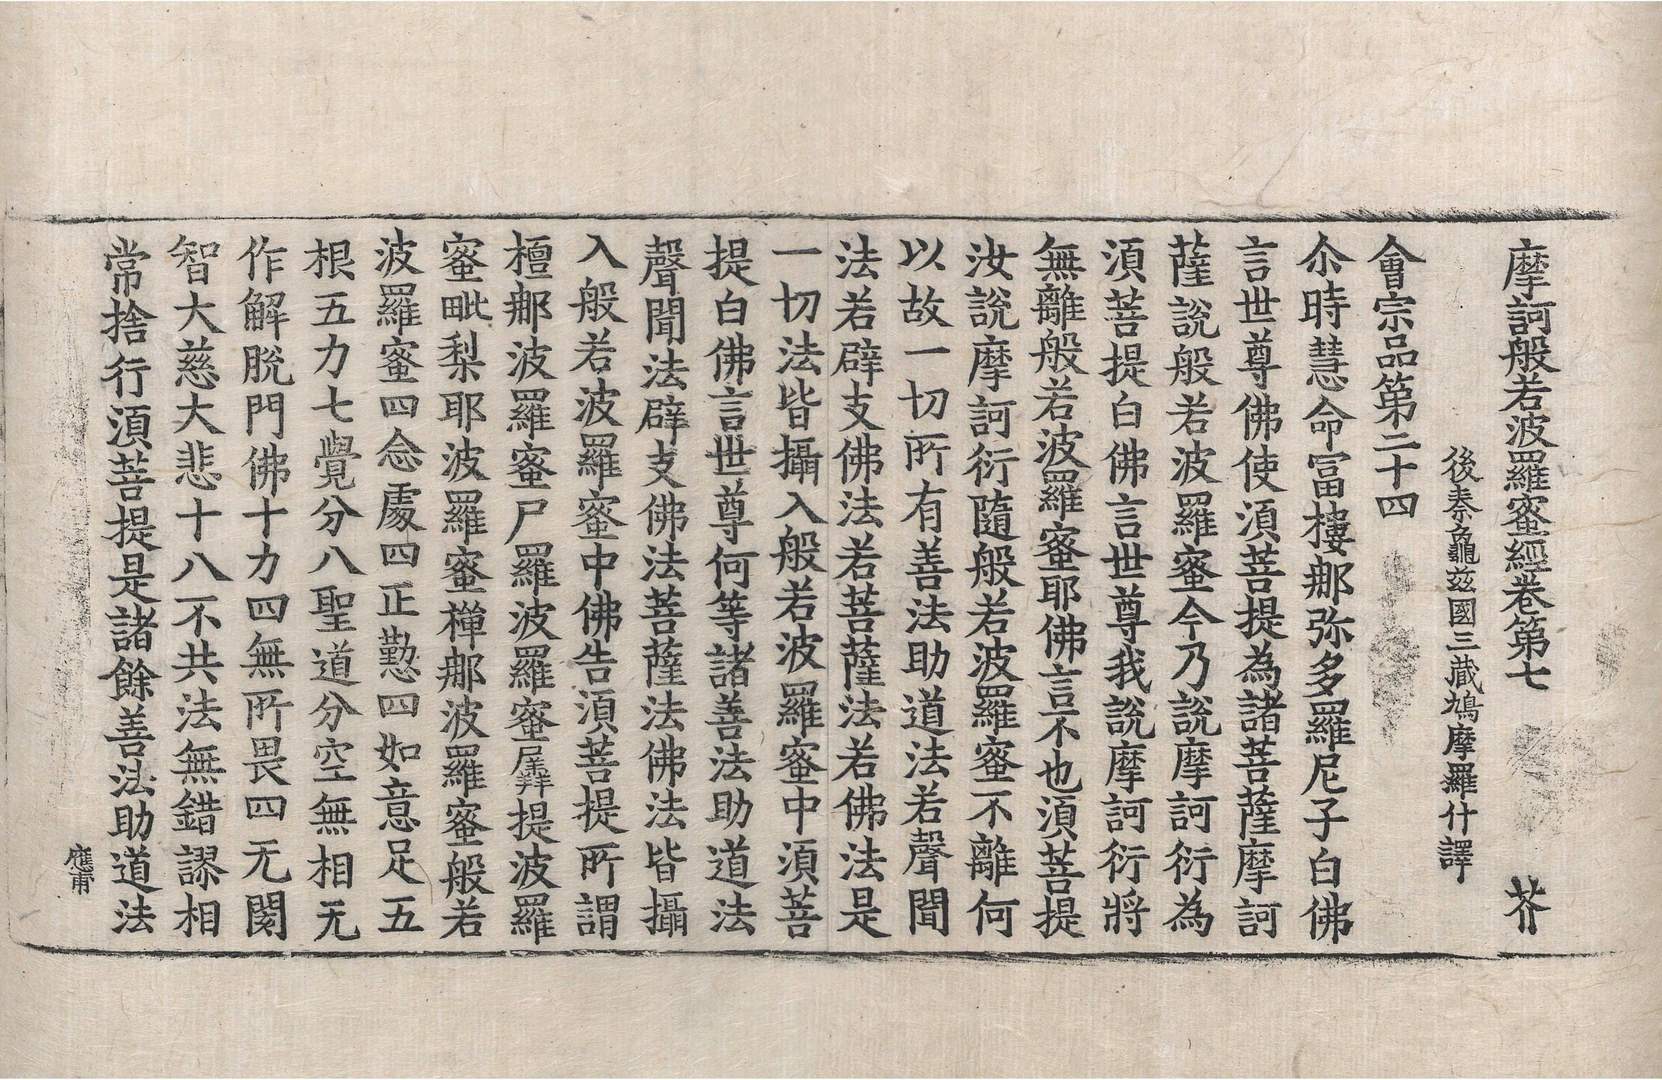 摩訶般若波羅蜜經卷第七 芥
後秦龜茲國三藏鳩摩羅什譯
會宗品第二十四
尒時慧命富樓那弥多羅尼子白佛
言世尊佛使湏菩提為諸菩薩摩訶
薩說般若波羅蜜今乃說摩訶衍為
湏菩提白佛言世尊我說摩訶衍將
無離般若波羅蜜耶佛言不也湏菩提
汝說摩訶衍隨般若波羅蜜不離何
以故一切所有善法助道法若聲聞
法若辟支佛法若菩薩法若佛法是
一切法皆攝入般若波羅蜜中湏菩
提白佛言世尊何等諸善法助道法
聲聞法辟支佛法菩薩法佛法皆攝
入般若波羅蜜中佛告湏菩提所謂
檀那波羅蜜尸羅波羅蜜羼提波羅
蜜毗梨耶波羅蜜禪那波羅蜜般若
波羅蜜四念處四正懃四如意足五
根五力七覺分八聖道分空無相无
作解脫門佛十力四無所畏四无閡
智大慈大悲十八不共法無錯謬相
常捨行湏菩提是諸餘善法助道法
應甫